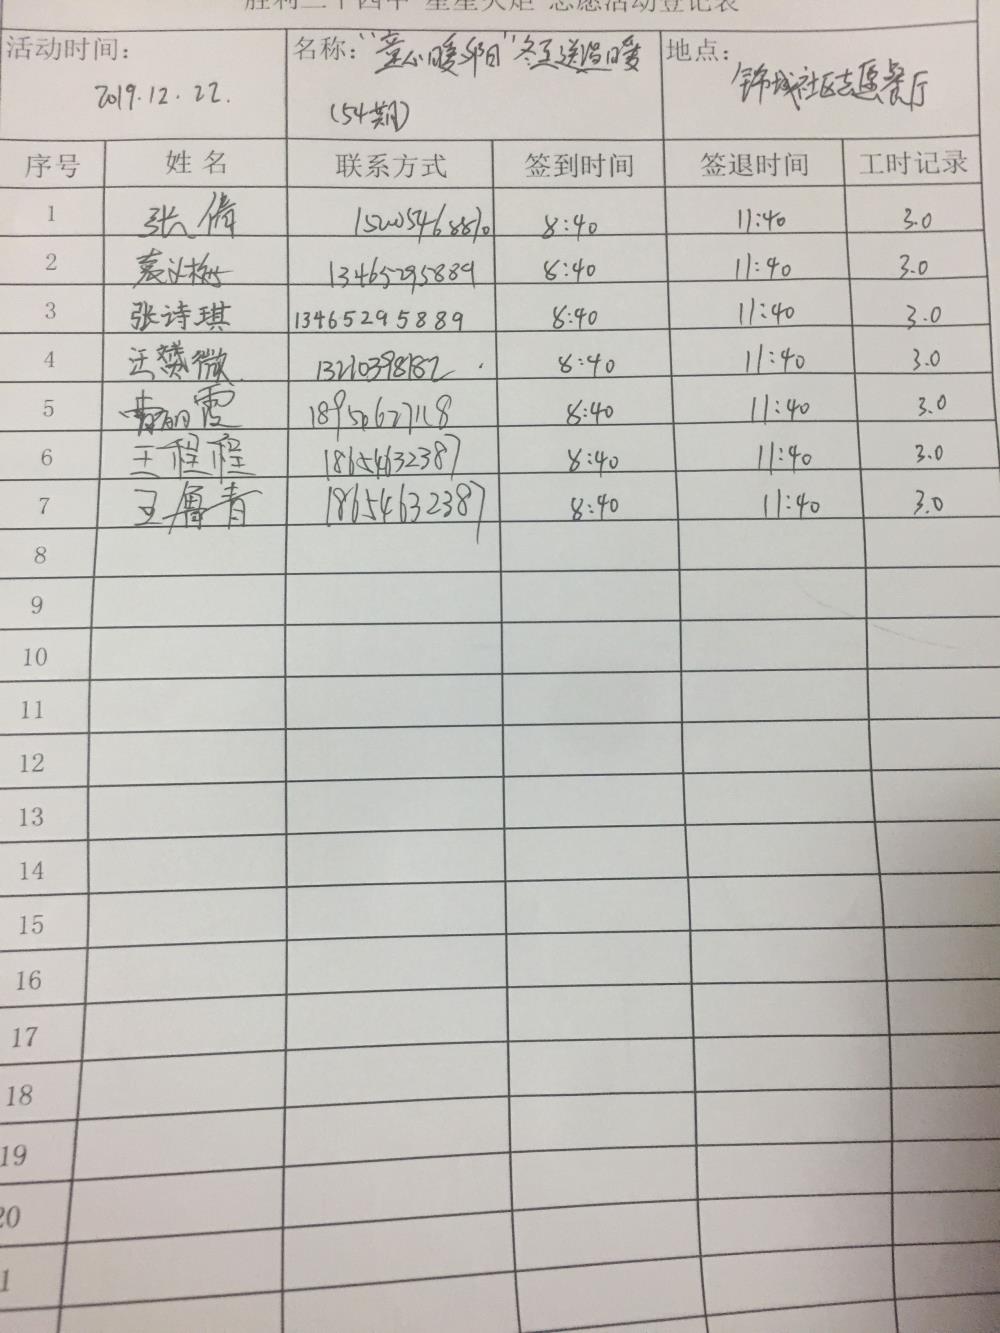 胜利二十四中"星星火炬"志愿活动登记表
活动时间： 名称："童心暖夕阳"冬至送温暖 地点：
2019.12.22. (54期) 锦城社区志愿餐厅
序号 姓名 联系方式 签到时间 签退时间 工时记录
1 张倩 8:40 11:40 3.0
2 13465295889 8:40 11:40 3.0
3 张诗琪 13465295889 8:40 11:40 3.0
4 微 13210398182 8:40 11:40 3.0
5 霞 8:40 11:40 3.0
6 王程程 18654632387 8:40 11:40 3.0
7 王鲁青 18654632387 8:40 11:40 3.0
8
9
10
11
12
13
14
15
16
17
18
19
20
1